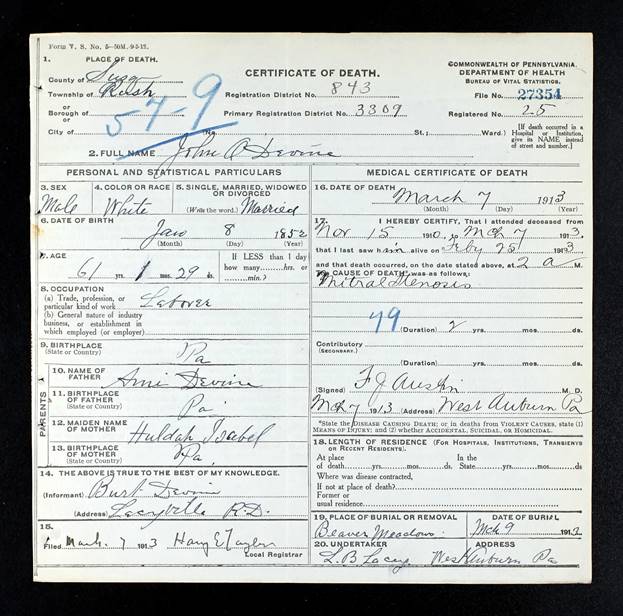 Form V. S. No. 5—50M. 9-5-12.
1. PLACE OF DEATH.
County of Susq
Township of Rush
or
Borough of
or
City of
57-9
CERTIFICATE OF DEATH.
Registration District No. 843
Primary Registration District No. 3309
No. St.; Ward.)
COMMONWEALTH OF PENNSYLVANIA.
DEPARTMENT OF HEALTH
BUREAU OF VITAL STATISTICS.
File No. 27354
Registered No. 25
[If death occurred in a Hospital or Institution, give its NAME instead of street and number.]
2. FULL NAME John A Devine
PERSONAL AND STATISTICAL PARTICULARS
3. SEX
Male
4. COLOR OR RACE
White
5. SINGLE, MARRIED, WIDOWED OR DIVORCED
(Write the word.) Married
6. DATE OF BIRTH
Jan 8 1852
(Month) (Day) (Year)
7. AGE
61 yrs. 1 mos. 29 ds.
If LESS than 1 day how many......hrs. or ......min.?
8. OCCUPATION
(a) Trade, profession, or particular kind of work Laborer
(b) General nature of industry business, or establishment in which employed (or employer)
9. BIRTHPLACE
(State or Country) Pa
PARENTS
10. NAME OF FATHER Ami Devine
11. BIRTHPLACE OF FATHER
(State or Country) Pa
12. MAIDEN NAME OF MOTHER Huldah Isabel
13. BIRTHPLACE OF MOTHER
(State or Country) Pa,
14. THE ABOVE IS TRUE TO THE BEST OF MY KNOWLEDGE.
(Informant) Burt Devine
(Address) Laceyville R.D.
15.
Filed March 7 1913 Harry E Taylor
Local Registrar
MEDICAL CERTIFICATE OF DEATH
16. DATE OF DEATH
March 7 1913
(Month) (Day) (Year)
17. I HEREBY CERTIFY, That I attended deceased from
Nov 15 1910, to Mch 7 1913.
that I last saw him alive on Feby 25 1913
and that death occurred, on the date stated above, at 2 a M.
The CAUSE OF DEATH* was as follows:
Mitral Stenosis
79 (Duration) 2 yrs. mos. ds.
Contributory
(SECONDARY.)
(Duration) yrs. mos. ds.
(Signed) F J Austin M. D.
Mch 7 1913 (Address) West Auburn Pa
*State the DISEASE CAUSING DEATH; or in deaths from VIOLENT CAUSES, state (1) MEANS OF INJURY; and (2) whether ACCIDENTAL, SUICIDAL, OR HOMICIDAL.
18. LENGTH OF RESIDENCE (FOR HOSPITALS, INSTITUTIONS, TRANSIENTS OR RECENT RESIDENTS.)
At place of death......yrs......mos......ds. In the State......yrs......mos......ds.
Where was disease contracted, if not at place of death?
Former or usual residence
19. PLACE OF BURIAL OR REMOVAL
Beaver Meadow
DATE OF BURIAL
Mch 9 1913
20. UNDERTAKER
L. B. Lacey
ADDRESS
West Auburn Pa